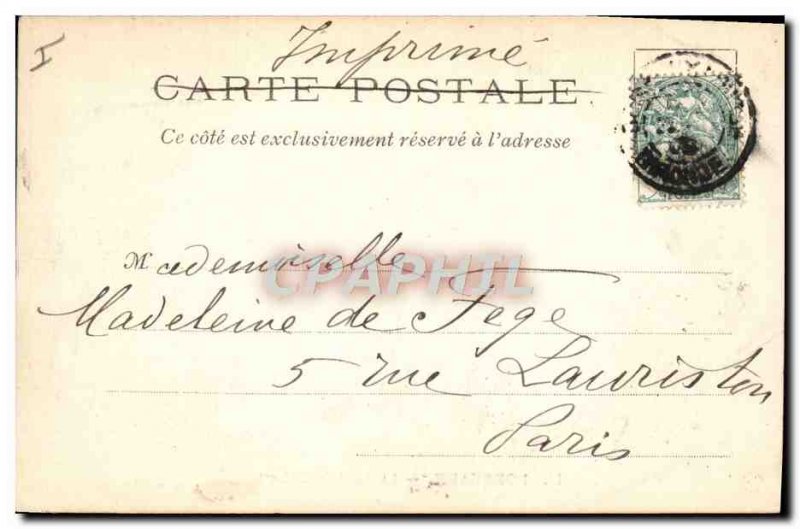 Imprimé
CARTE POSTALE
Ce côté est exclusivement réservé à l'adresse
Mademoiselle
CPAPHIL
Madeleine de Fege
5 rue Lauriston
Paris